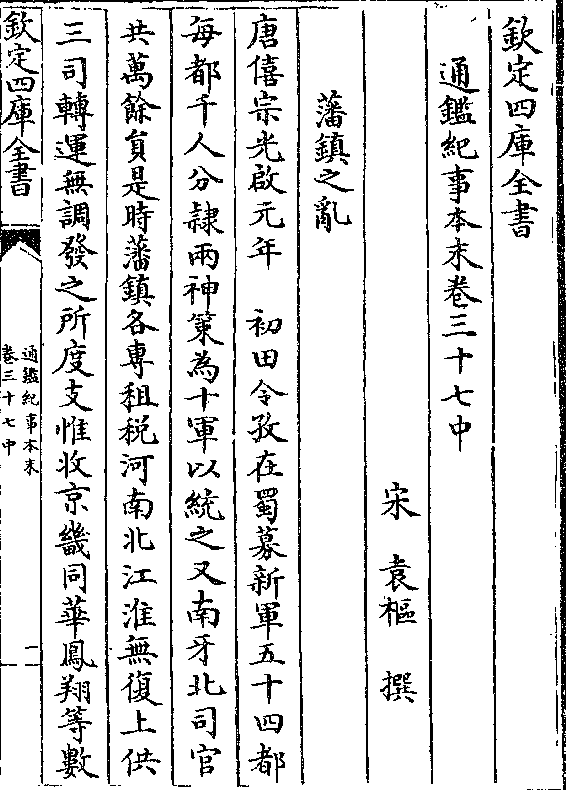 欽定四庫全書
通鑑紀事本末卷三十七中
宋 袁樞 撰
藩鎮之亂
唐僖宗光啟元年 初田令孜在蜀募新軍五十四都
每都千人分隸兩神策為十軍以統之又南牙北司官
共萬餘員是時藩鎮各專租稅河南北江淮無復上供
三司轉運無調發之所度支惟收京畿同華鳳翔等數
欽定四庫全書
通鑑紀事本末
卷三十七中
一